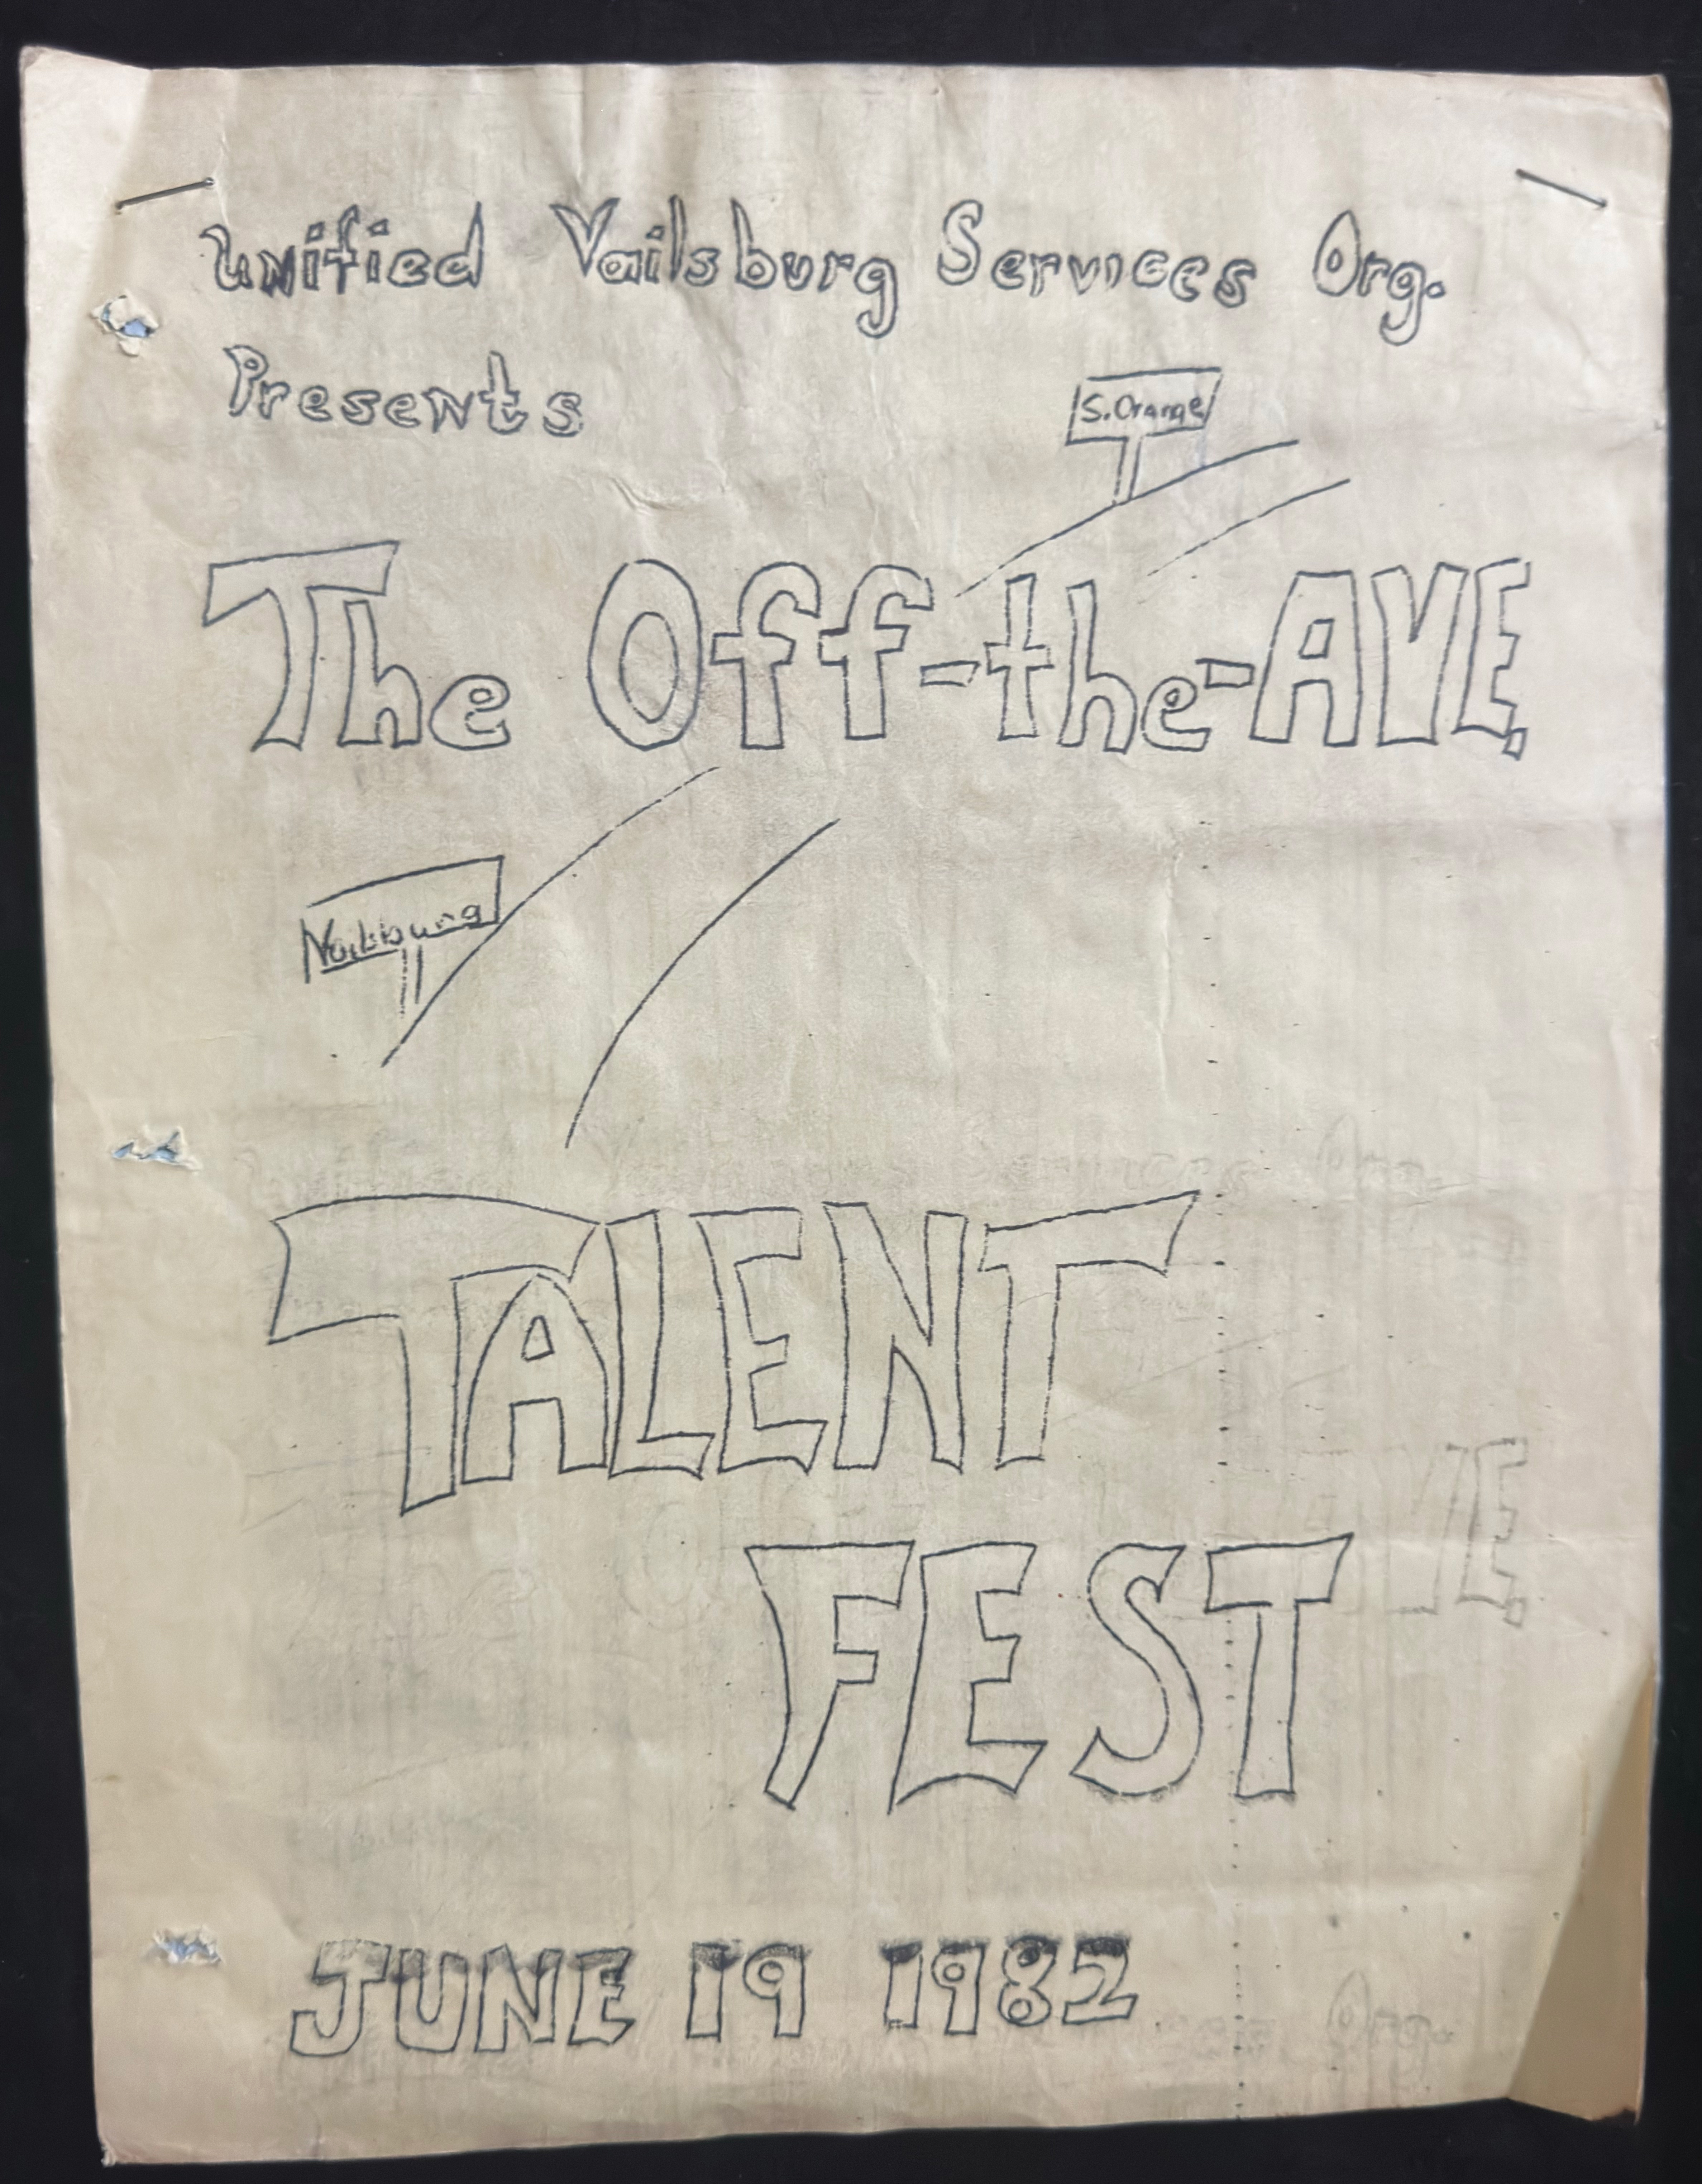 Unified Vailsburg Services Org.
Presents
S. Orange
The Off-the-AVE.
Vailsburg
TALENT
FEST
JUNE 19 1982